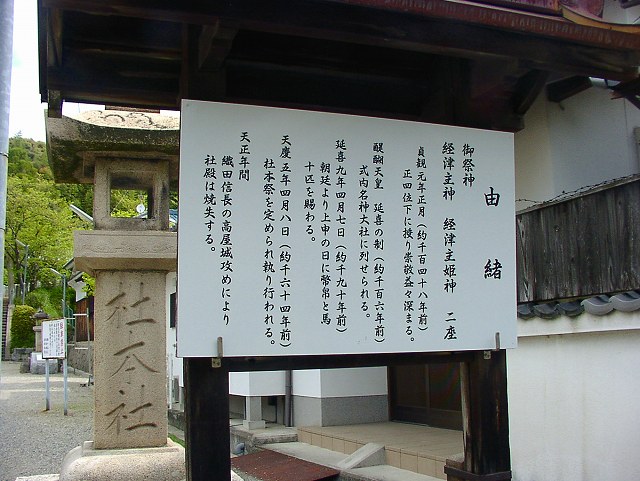 由緒
御祭神
経津主神　経津主姫神　二座
貞観元年正月（約千百四十八年前）
正四位下に授り崇敬益々深まる。
醍醐天皇　延喜の制（約千百六年前）
式内名神大社に列せられる。
延喜九年四月七日（約千九十年前）
朝廷より上申の日に幣帛と馬
十匹を賜わる。
天慶五年四月八日（約千六十四年前）
社本祭を定められ執り行われる。
天正年間
織田信長の高屋城攻めにより
社殿は焼失する。